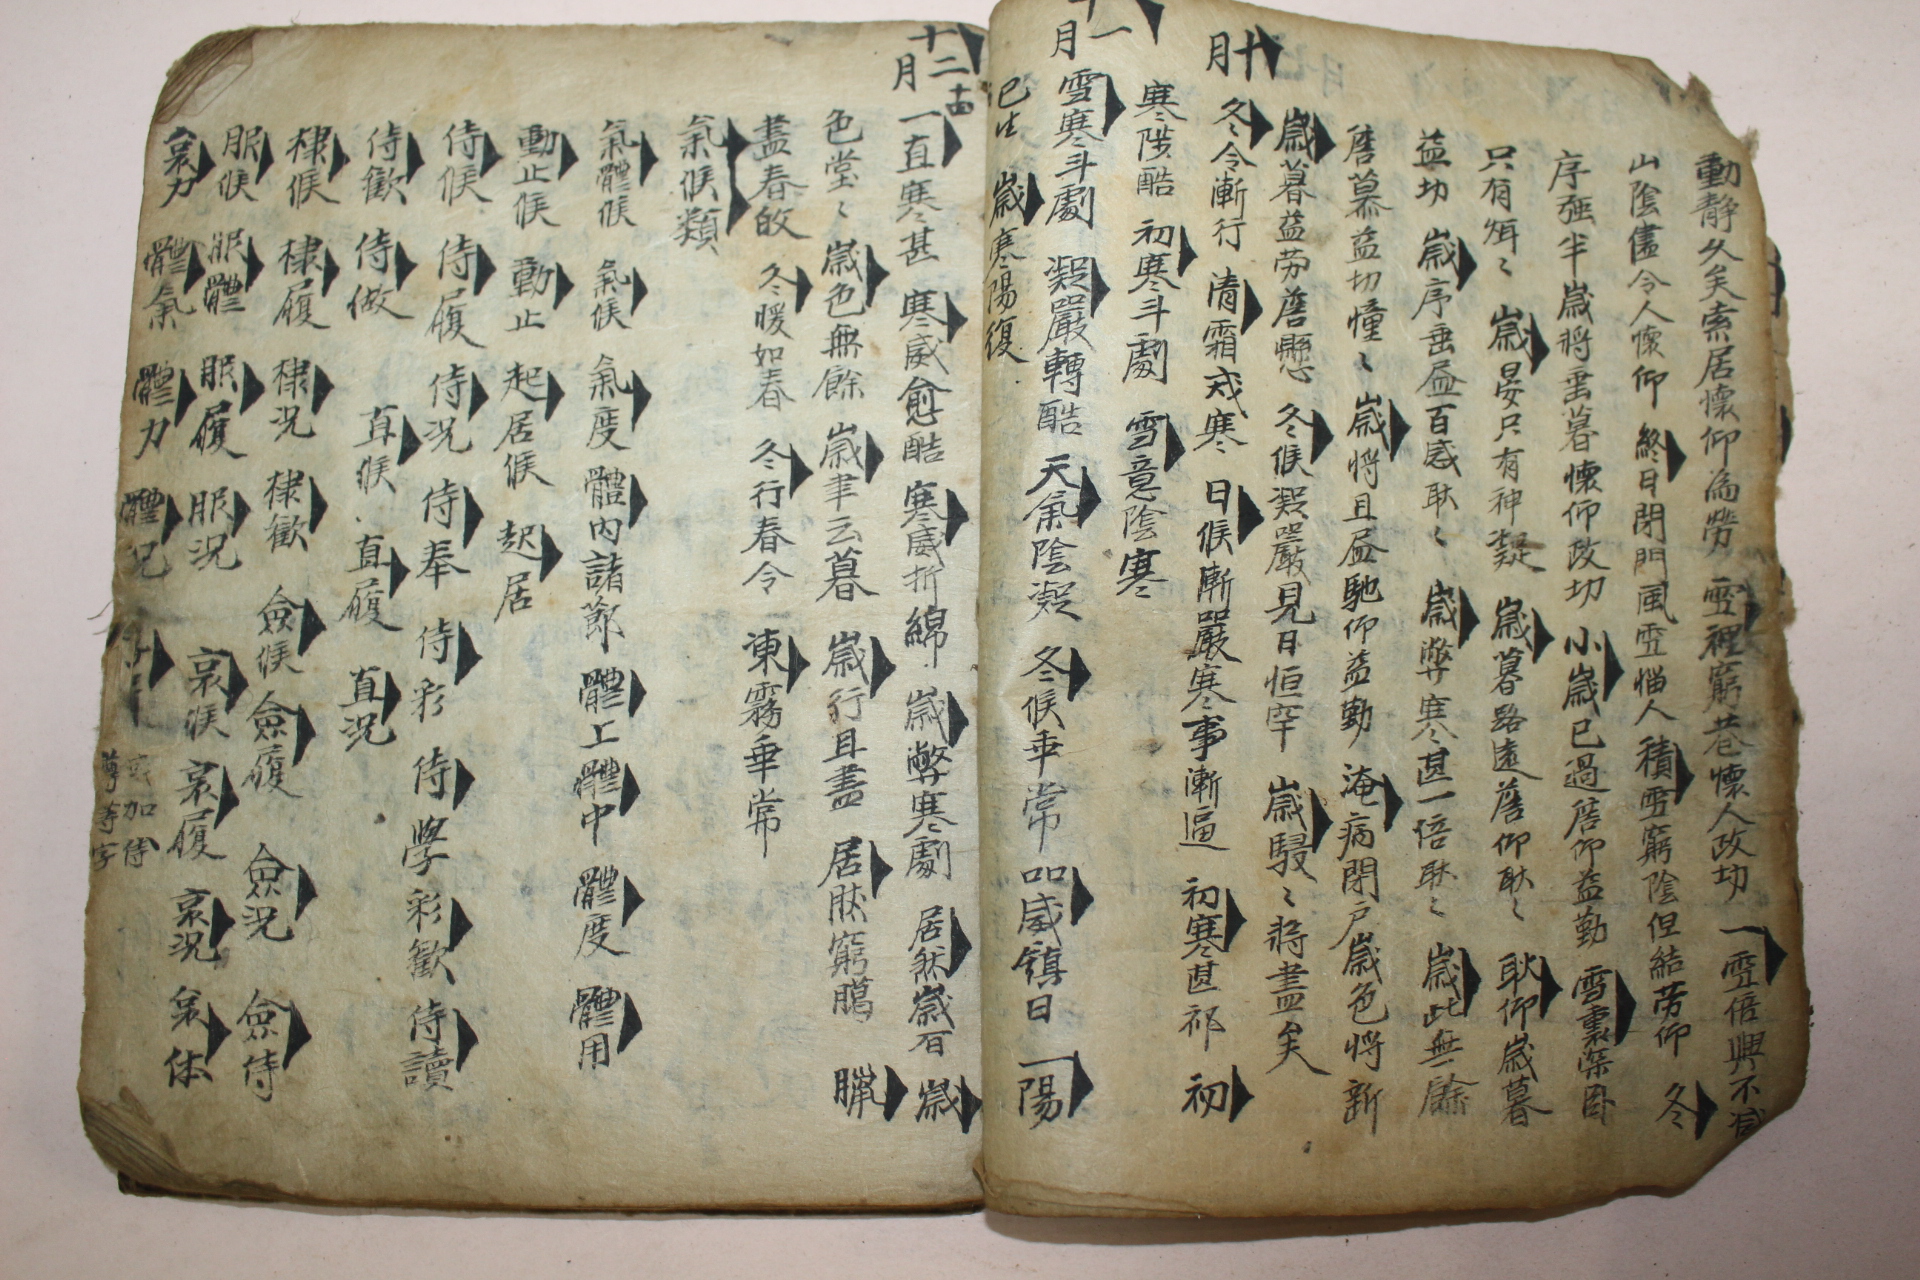 動靜久矣索居懷仰爲勞 雪裡窮巷懷人政切 一雪倍興不減
山陰儘令人懷仰 終日閉門風雪惱人 積雪窮陰但結勞仰 冬
序强半歲將垂暮懷仰政切 小歲已過 仰益勤 雪裏深臥
只有 歲晏只有神凝 歲暮路遠 仰耿〻 耿仰歲暮
益切 歲序垂盡百感耿〻 歲弊寒甚一倍耿〻 歲此無餘
慕益切憧〻 歲將且盡馳仰益勤 淹病閉戶歲色將新
歲暮益勞 懸 冬候凝嚴見日恒罕 歲駸〻將盡矣
十月
冬令漸行 清霜戒寒 日候漸嚴寒事漸逼 初寒甚祁 初
寒陟酷 初寒斗劇 雪意陰寒
十一月
雪寒斗劇 凝嚴轉酷 天氣陰凝 冬候乖常 威鎮日 一陽
已生 歲寒陽復
十二月
一直寒甚 寒威愈酷 寒威折綿 歲弊寒劇 居然歲 歲
色堂〻 歲色無餘 歲聿云暮 歲行且盡 居然窮臈 臘
盡春 冬暖如春 冬行春令 東霧乖常
氣候類
氣體候 氣候 氣度 體內諸節 體上 體中 體度 體用
動止候 動止 起居候 起居
侍候 侍履 侍況 侍奉 侍彩 侍學 彩歡 侍讀
侍歡 侍做 直候 直履 直況
棣候 棣履 棣況 棣歡 僉候 僉履 僉況 僉侍
服候 服體 服履 服況 哀候 哀履 哀況 哀体
哀力 體氣 體力 體況
或加侍
尊等字